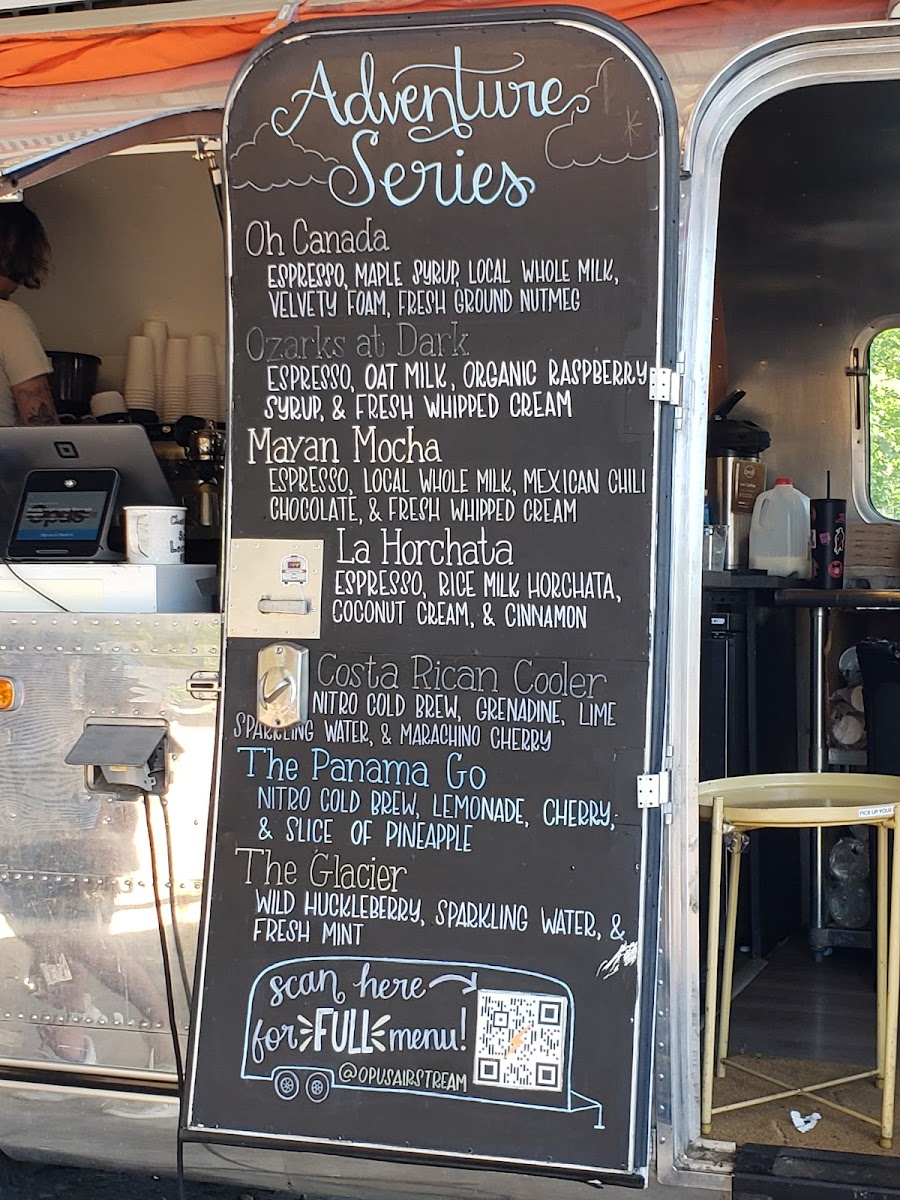 Adventure
Series
Oh Canada
ESPRESSO, MAPLE SYRUP, LOCAL WHOLE MILK,
VELVETY FOAM, FRESH GROUND NUTMEG
Ozarks at Dark
ESPRESSO, OAT MILK, ORGANIC RASPBERRY
SYRUP, & FRESH WHIPPED CREAM
Mayan Mocha
ESPRESSO, LOCAL WHOLE MILK, MEXICAN CHILI
CHOCOLATE, & FRESH WHIPPED CREAM
La Horchata
ESPRESSO, RICE MILK HORCHATA,
COCONUT CREAM, & CINNAMON
Costa Rican Cooler
NITRO COLD BREW, GRENADINE, LIME
SPARKLING WATER, & MARACHINO CHERRY
The Panama Go
NITRO COLD BREW, LEMONADE, CHERRY,
& SLICE OF PINEAPPLE
The Glacier
WILD HUCKLEBERRY, SPARKLING WATER, &
FRESH MINT
scan here
for FULL menu!
@OPUSAIRSTREAM
Opus
PICK UP YOUR